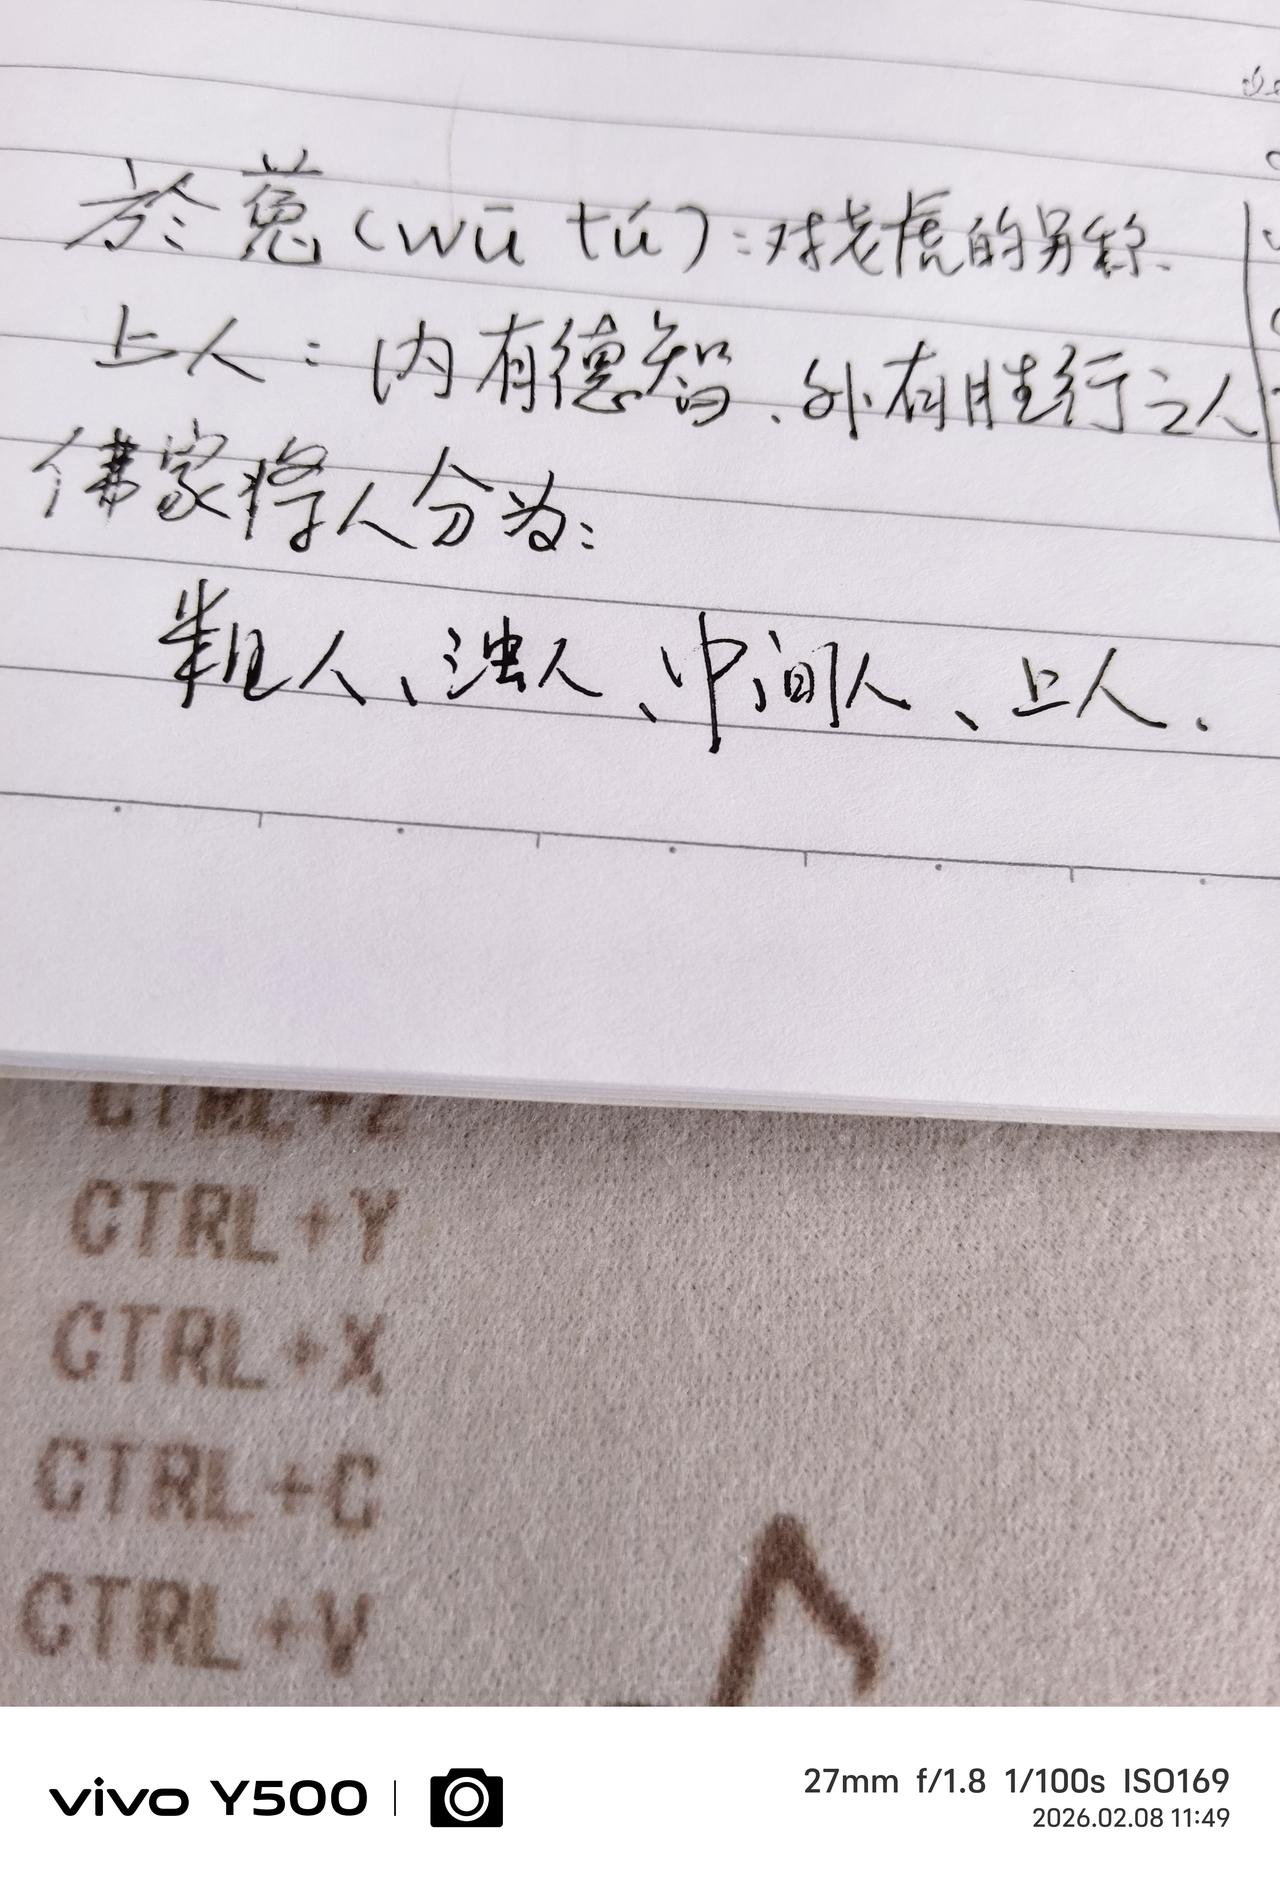 於菟（wū tú）：对老虎的另称.
上人：内有德智、外有胜行之人
佛家将人分为：
粗人、浊人、中间人、上人.
CTRL+Z
CTRL+Y
CTRL+X
CTRL+C
CTRL+V
vivo Y500
27mm f/1.8 1/100s ISO169
2026.02.08 11:49